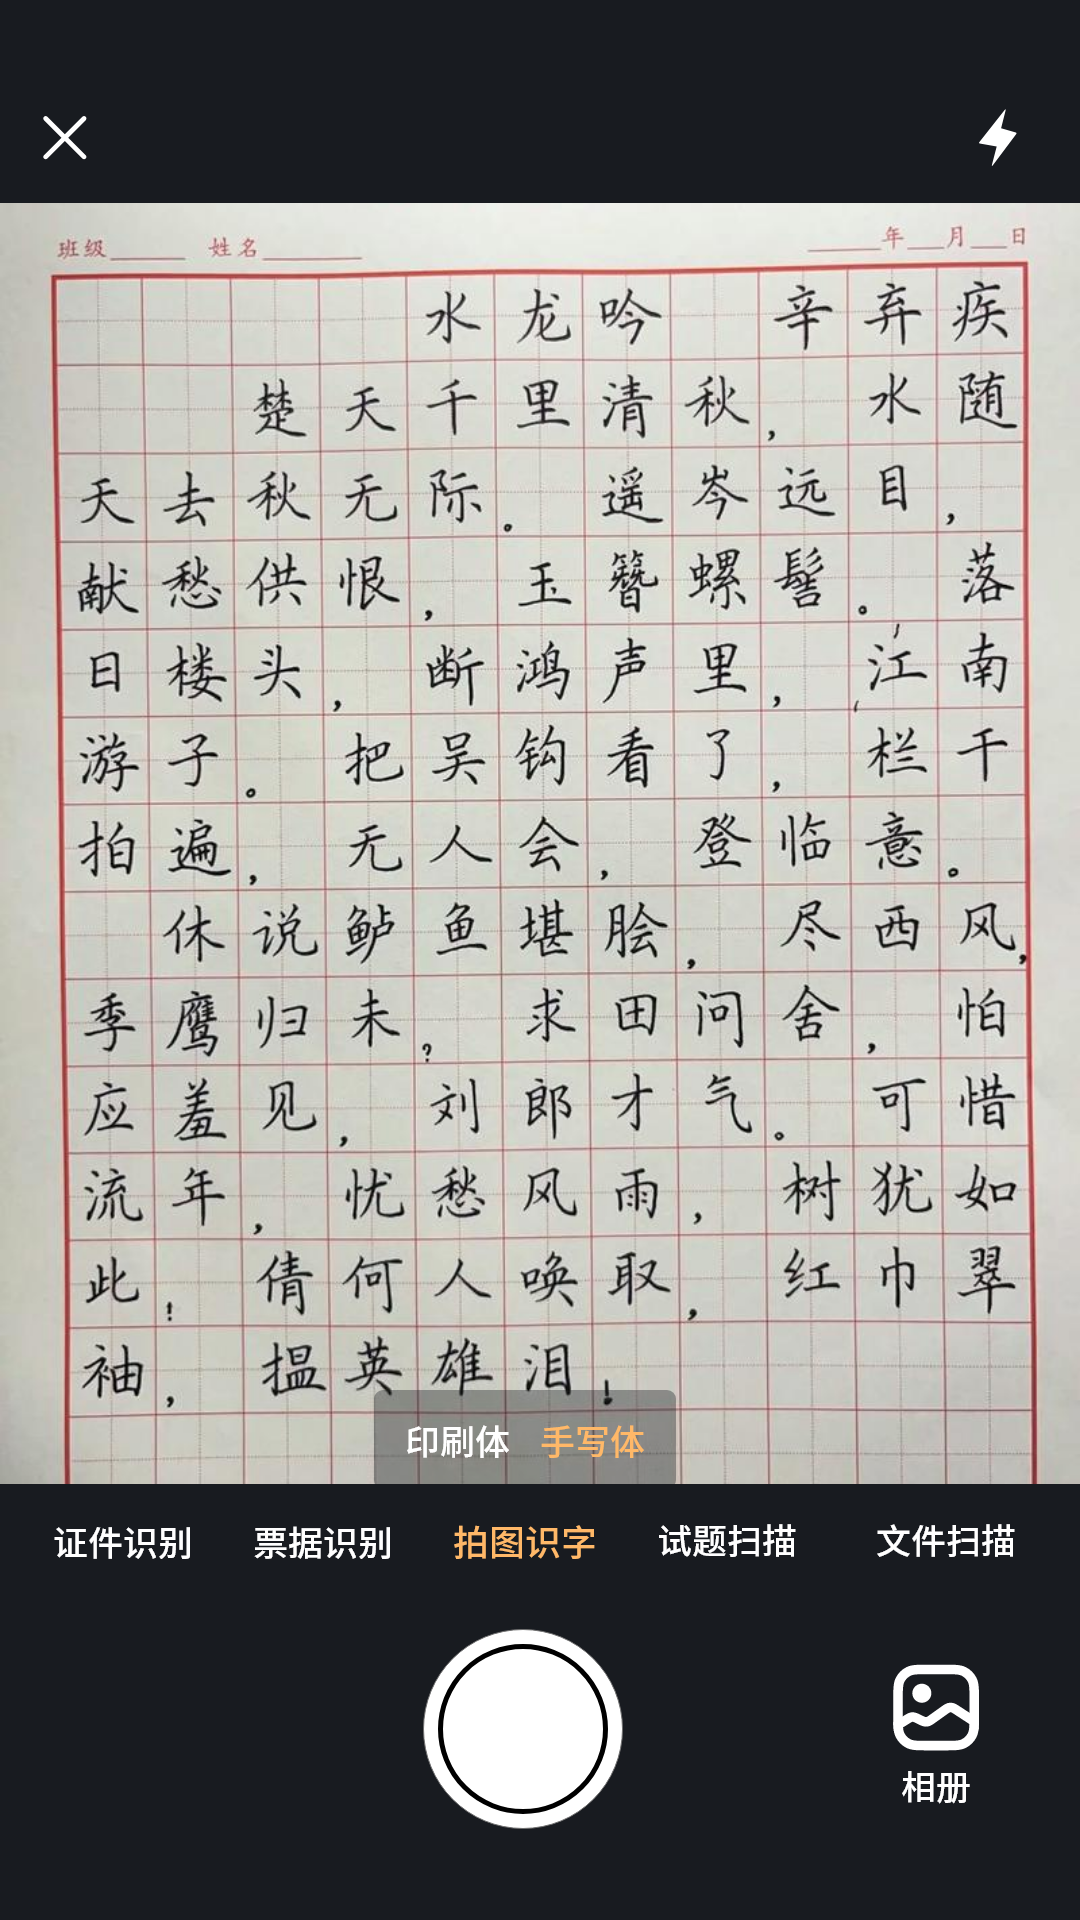 班级______ 姓名________ ______年___月___日
水龙吟 辛弃疾
楚天千里清秋，水随
天去秋无际。遥岑远目，
献愁供恨，玉簪螺髻。落
日楼头，断鸿声里，江南
游子。把吴钩看了，栏干
拍遍，无人会，登临意。
休说鲈鱼堪脍，尽西风，
季鹰归未？求田问舍，怕
应羞见，刘郎才气。可惜
流年，忧愁风雨，树犹如
此！倩何人唤取，红巾翠
袖，揾英雄泪！
印刷体 手写体
证件识别 票据识别 拍图识字 试题扫描 文件扫描
相册